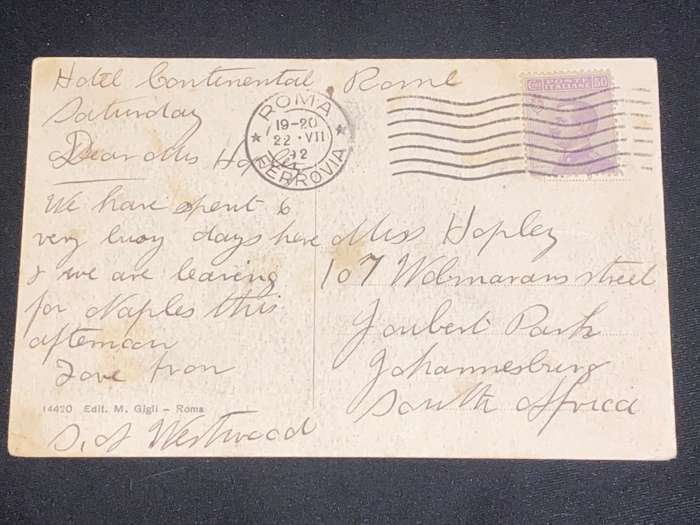 Hotel Continental, Rome
Saturday
Dear Miss Hopley
We have spent 6
very busy days here
& we are leaving
for Naples this
afternoon
Love from
S. A Westwood
14420 Edit. M. Gigli – Roma
ROMA
19-20
22 · VII
FERROVIA
POSTE
ITALIANE
Miss Hopley
107 Wolmarans street
Joubert Park
Johannesburg
South Africa